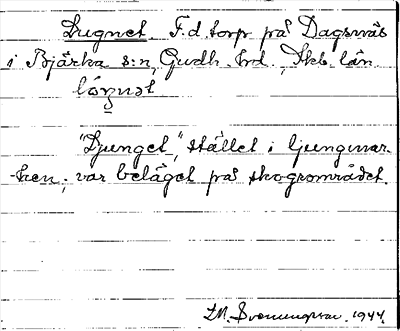 Lugnet. F.d. torp på Dagsnäs
i Bjärka s:n, Gudh. hrd., Skb. län.
"Djunget", stället i ljungmar-
ken; var beläget på skogsområdet.
1944.